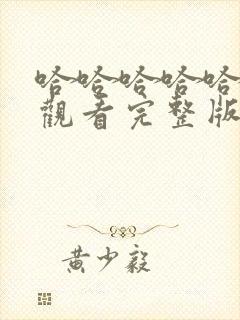 哈哈哈哈哈
觀看完整版
黃少毅